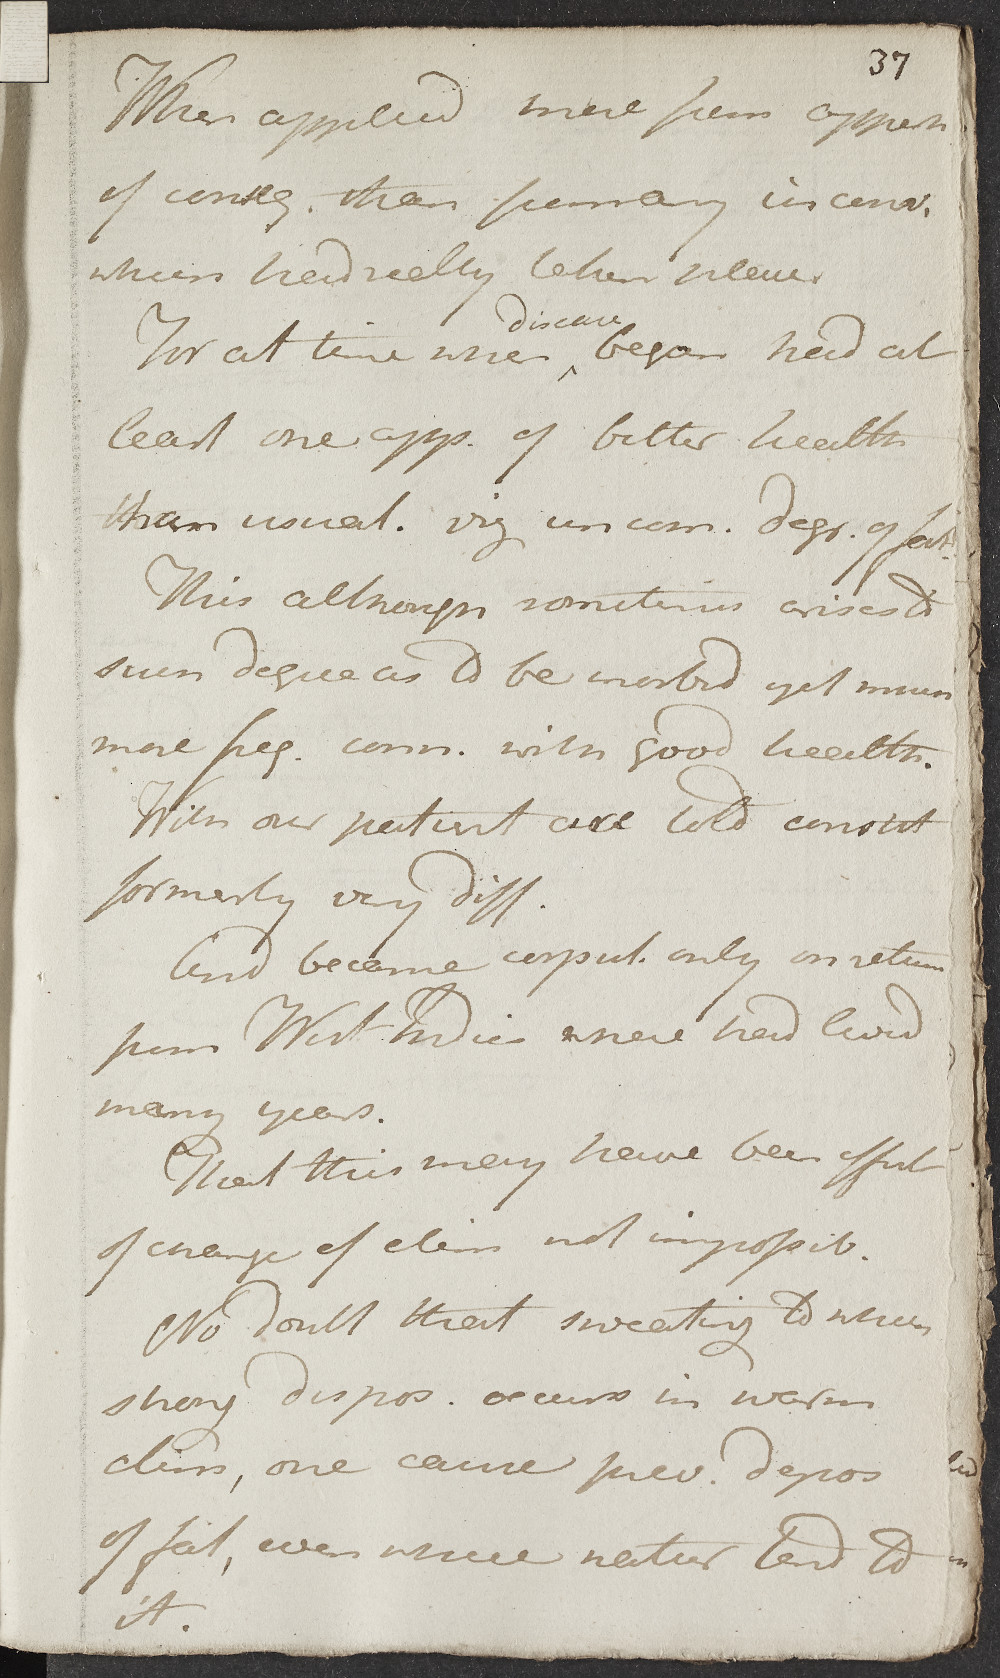 37
When applied more from appreh
of conseq. than from any inconv.
which had really taken place
For at time when ^disease began had at
least one app. of better health
than usual. viz uncom. degr. of fat.
This although sometimes arises to
such degree as to be morbid yet much
more freq. conn. with good health.
With our patient are told constit
formerly very diff.
And became corpul. only on return
from West Indies where had lived
many years.
That this may have been effect
of change of clim not impossib.
No doubt that sweating to which
strong dispos. occurs in warm
clim, one cause prev. depos
of fat, even where natur tend to
it.